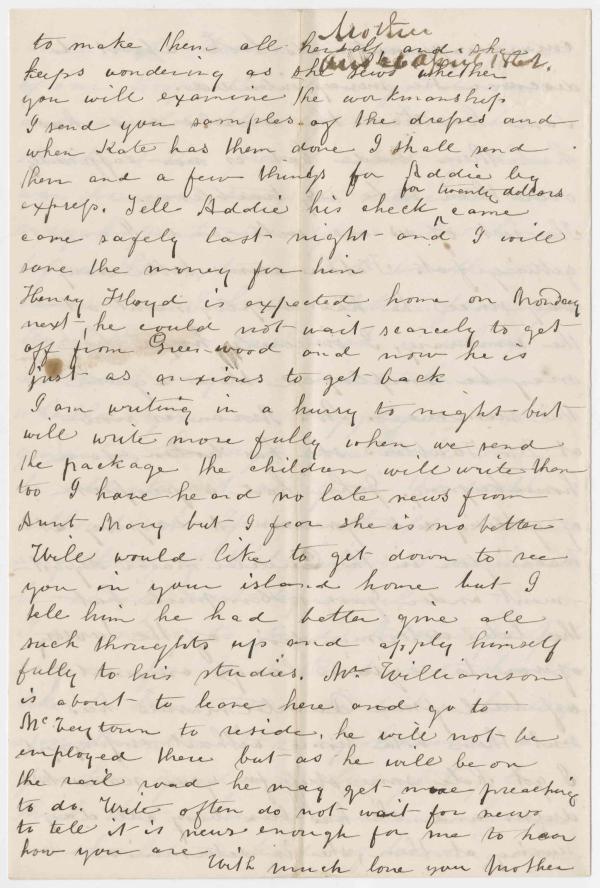 Mother
1862.
to make them all herself, and she
keeps wondering as she sews whether
you will examine the workmanship
I send you samples of the dresses and
when Kate has them done I shall send
them and a few things for Addie by
express. Tell Addie his check ^ for twenty dollars came
come safely last night and I will
save the money for him
Henry Floyd is expected home on Monday
next, he could not wait scarcely to get
off from Greenwood and now he is
just as anxious to get back
I am writing in a hurry to night but
will write more fully when we send
the package the children will write then
too I have heard no late news from
Aunt Mary but I fear she is no better
Will would like to get down to see
you in your island home but I
tell him he had better give all
such thoughts up and apply himself
fully to his studies. Mr. Williamson
is about to leave here and go to
McVeytown to reside, he will not be
employed there but as he will be on
the rail road he may get more preaching
to do. Write often do not wait for news
to tell it is news enough for me to hear
how you are
With much love your Mother